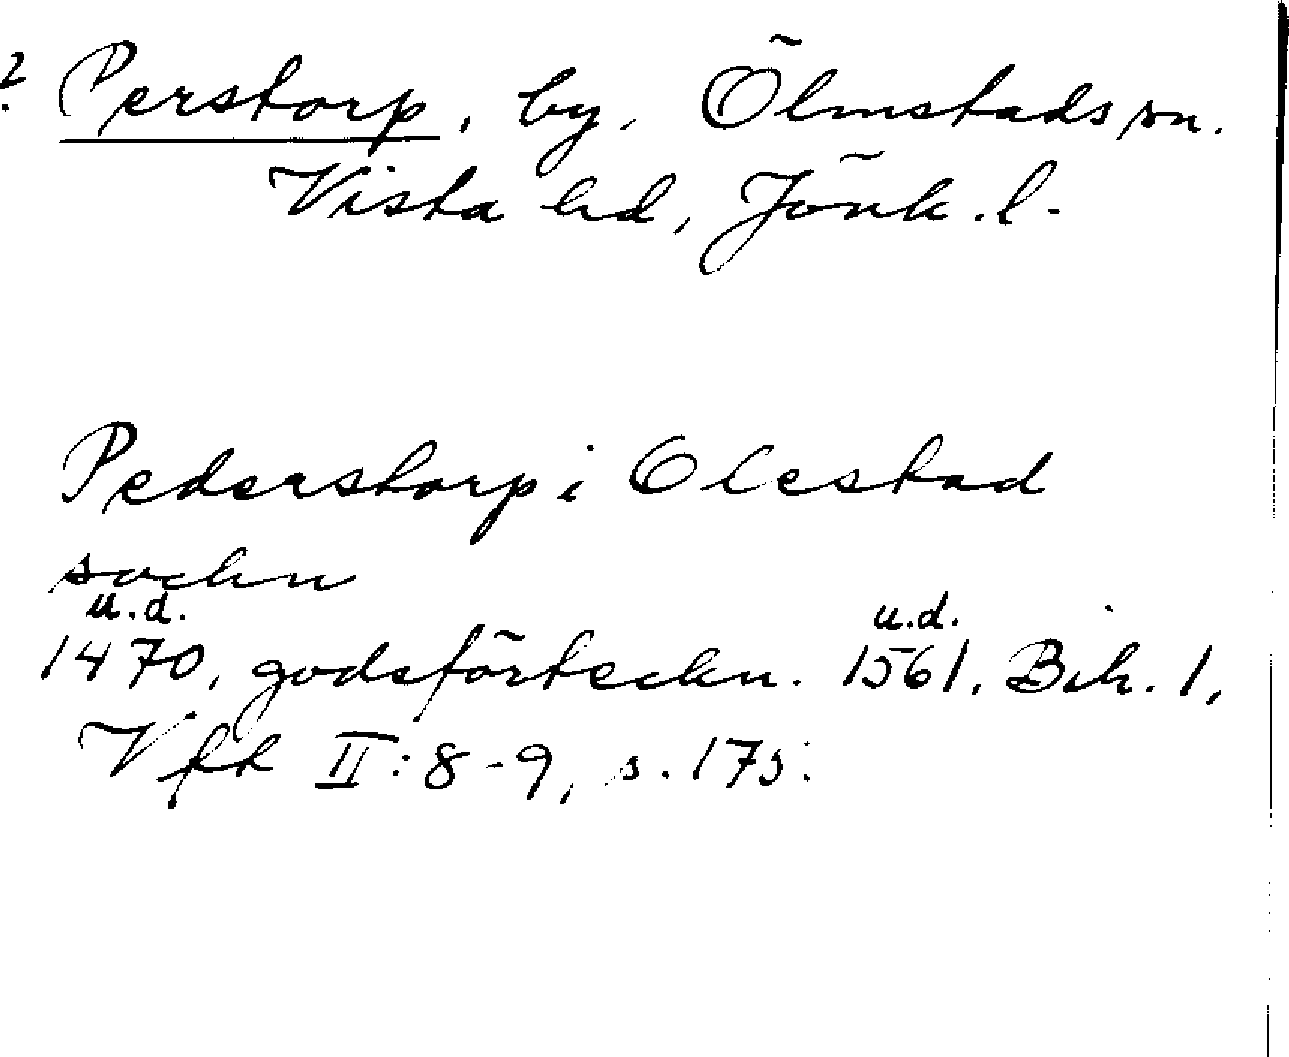 ? Perstorp, by, Ölmstads sn.
Vista hd, Jönk. l.
Pederstorp i Olestad
sochn
u.d. u.d.
1470, godsförteckn. 1561, Bih. 1,
Vfk II:8-9, s. 175.